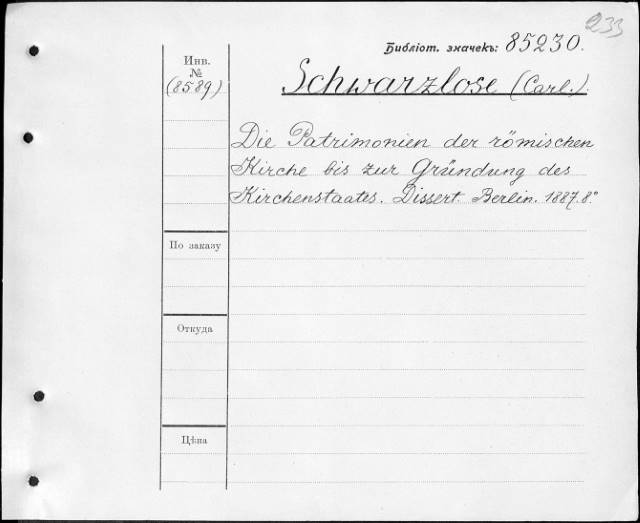 233
Библіот. значекъ: 85230.
Инв.
№
(8589)
Schwarzlose (Carl.).
Die Patrimonien der römischen
Kirche bis zur Gründung des
Kirchenstaates. Dissert Berlin. 1887. 8°
По заказу
Откуда
Цѣна